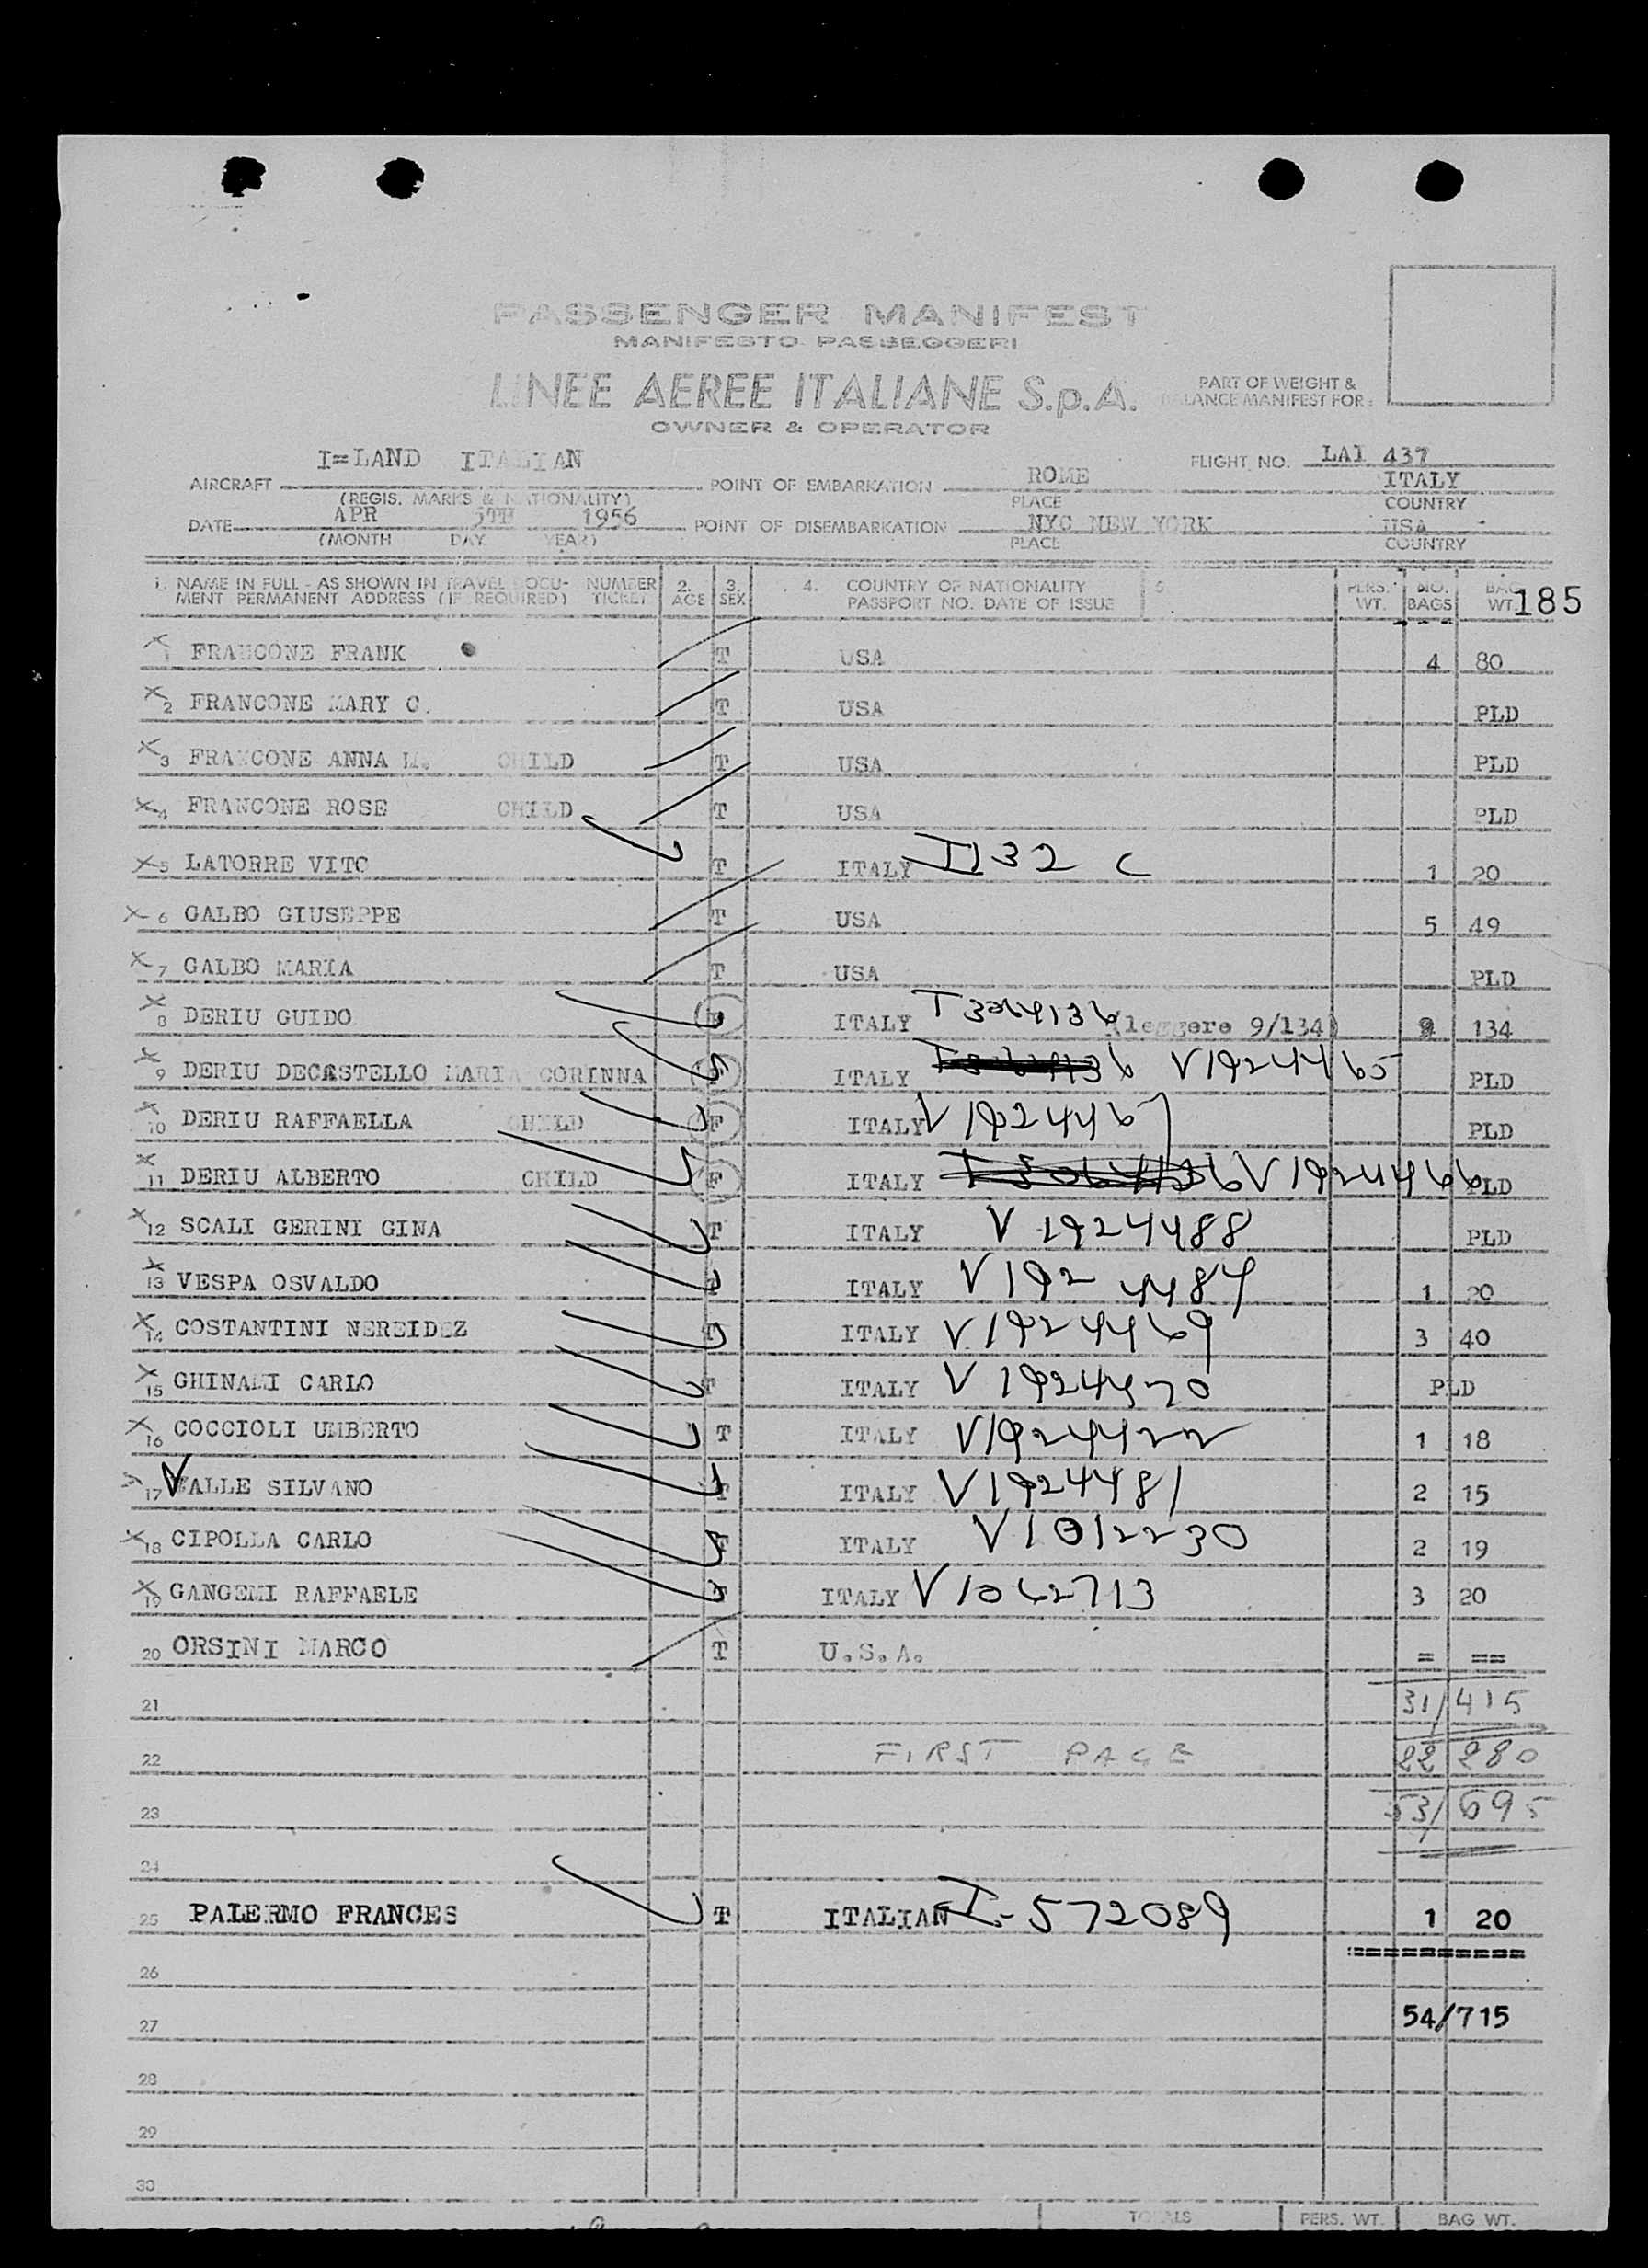 PASSENGER MANIFEST
MANIFESTO PASSEGGERI
LINEE AEREE ITALIANE S.p.A.
OWNER & OPERATOR
PART OF WEIGHT &
BALANCE MANIFEST FOR:
AIRCRAFT I=LAND ITALIAN
(REGIS. MARKS & NATIONALITY)
FLIGHT NO. LAI 437
POINT OF EMBARKATION ROME ITALY
PLACE COUNTRY
DATE APR 5TH 1956
(MONTH DAY YEAR)
POINT OF DISEMBARKATION NYC NEW YORK USA
PLACE COUNTRY
1. NAME IN FULL - AS SHOWN IN TRAVEL DOCU- NUMBER 2. 3. 4. COUNTRY OF NATIONALITY 5 PERS. NO. BAG
MENT PERMANENT ADDRESS (IF REQUIRED) TICKET AGE SEX PASSPORT NO. DATE OF ISSUE WT. BAGS WT. 185
1 FRANCONE FRANK T USA 4 80
2 FRANCONE MARY C. T USA PLD
3 FRANCONE ANNA M. CHILD T USA PLD
4 FRANCONE ROSE CHILD T USA PLD
5 LATORRE VITO T ITALY I132 C 1 20
6 GALBO GIUSEPPE T USA 5 49
7 GALBO MARIA T USA PLD
8 DERIU GUIDO ITALY T3064136 (leggere 9/134) 9 134
9 DERIU DECASTELLO MARIA CORINNA F ITALY V1924465 PLD
10 DERIU RAFFAELLA CHILD F ITALY V1924467 PLD
11 DERIU ALBERTO CHILD F ITALY V1924466 PLD
12 SCALI GERINI GINA T ITALY V 1924488 PLD
13 VESPA OSVALDO T ITALY V192 4484 1 20
14 COSTANTINI NEREIDEZ T ITALY V1924469 3 40
15 GHINAMI CARLO T ITALY V 1924470 PLD
16 COCCIOLI UMBERTO T ITALY V1924422 1 18
17 VALLE SILVANO T ITALY V1924481 2 15
18 CIPOLLA CARLO T ITALY V1012230 2 19
19 GANGEMI RAFFAELE T ITALY V1062713 3 20
20 ORSINI MARCO T U.S.A. = ==
21 31/415
22 FIRST PAGE 22 280
23 53/695
24
25 PALERMO FRANCES T ITALIAN I-572089 1 20
==========
26
27 54/715
28
29
30
TOTALS PERS. WT. BAG WT.